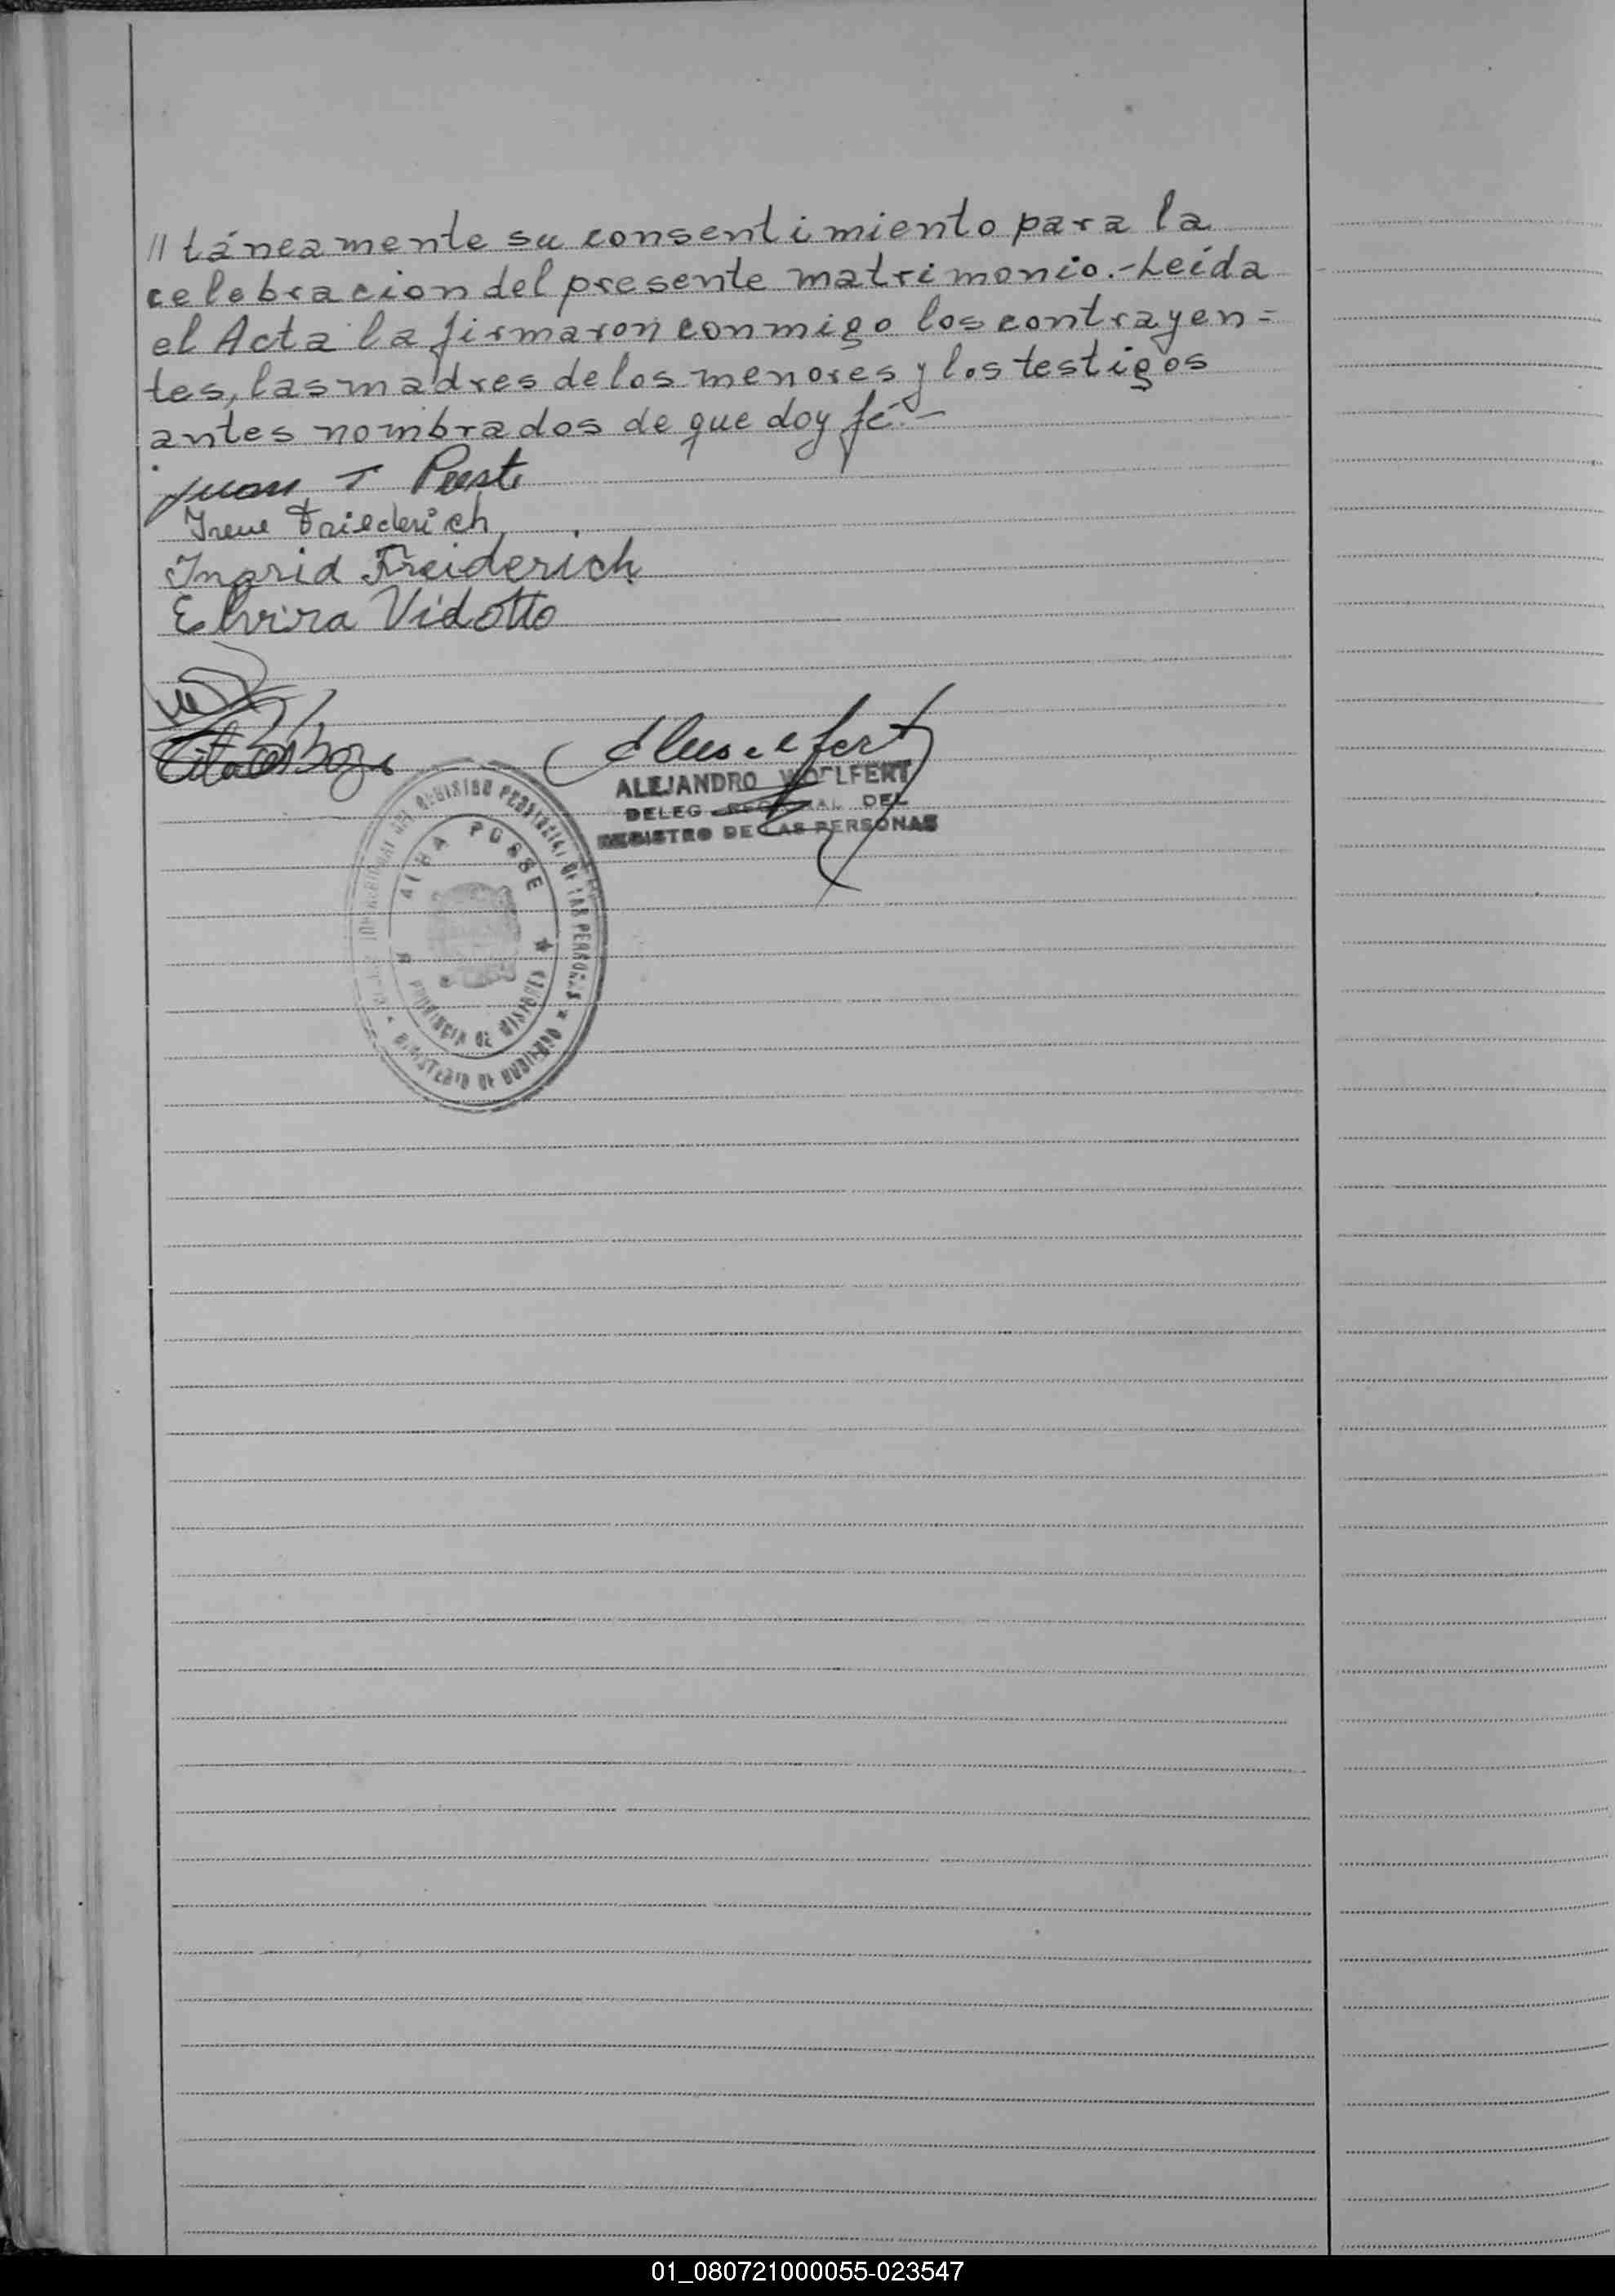 // táneamente su consentimiento para la
celebracion del presente matrimonio.- Leída
el Acta la firmaron conmigo los contrayen=
tes, las madres de los menores y los testigos
antes nombrados de que doy fé.-
Juan T
Irene Friederich
Ingrid Freiderich
Elvira Vidotto
ALEJANDRO WOELFERT
DELEG. REGIONAL DEL
REGISTRO DE LAS PERSONAS
REGISTRO PROVINCIAL DE LAS PERSONAS
ALBA POSSE
PROVINCIA DE MISIONES
MINISTERIO DE GOBIERNO
01_080721000055-023547